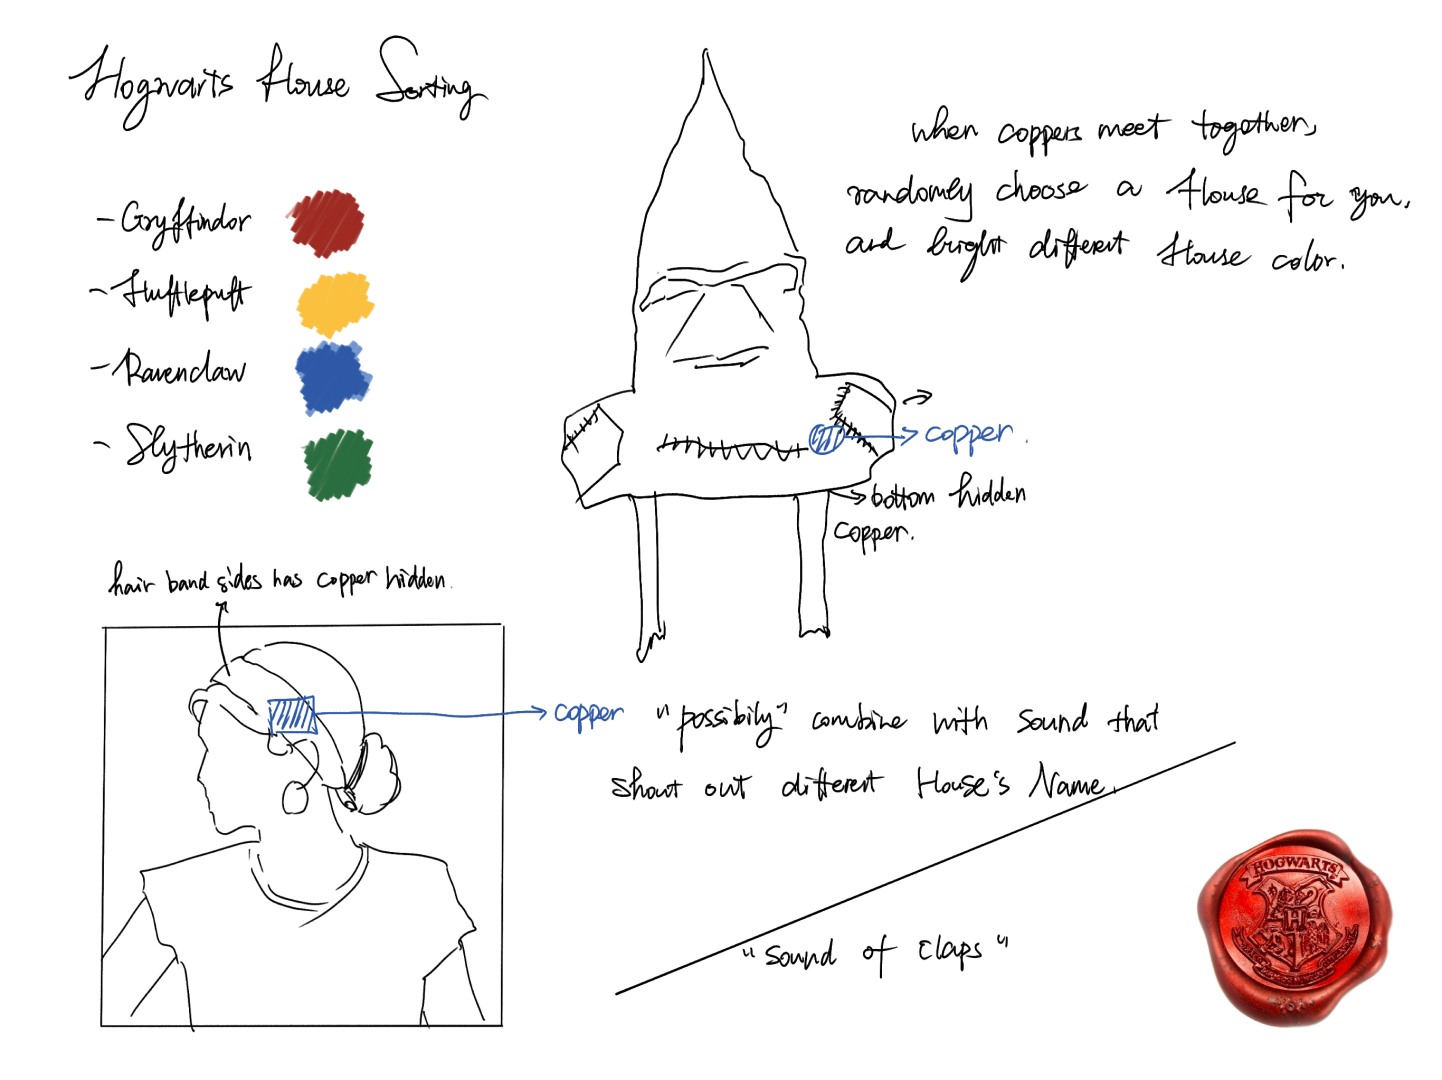 Hogwarts House Sorting
- Gryffindor
- Hufflepuff
- Ravenclaw
- Slytherin
when coppers meet together,
randomly choose a House for you,
and bright different House color.
copper.
bottom hidden
copper.
hair band sides has copper hidden.
copper
"possibily" combine with sound that
shout out different House's Name.
"sound of claps"
HOGWARTS
H